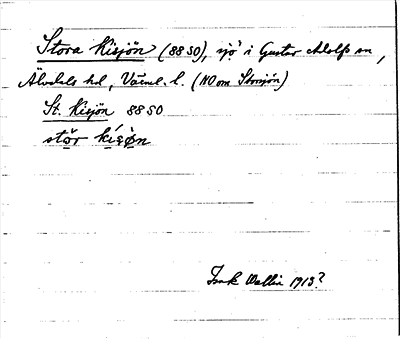 Stora Kisjön (88 SO), sjö i Gustav Adolfs sn,
Älvdals hd, Värml. l. (NO om Storsjön)
St. Kisjön 88 SO
stor kisøn
Isak Wallin 1913?